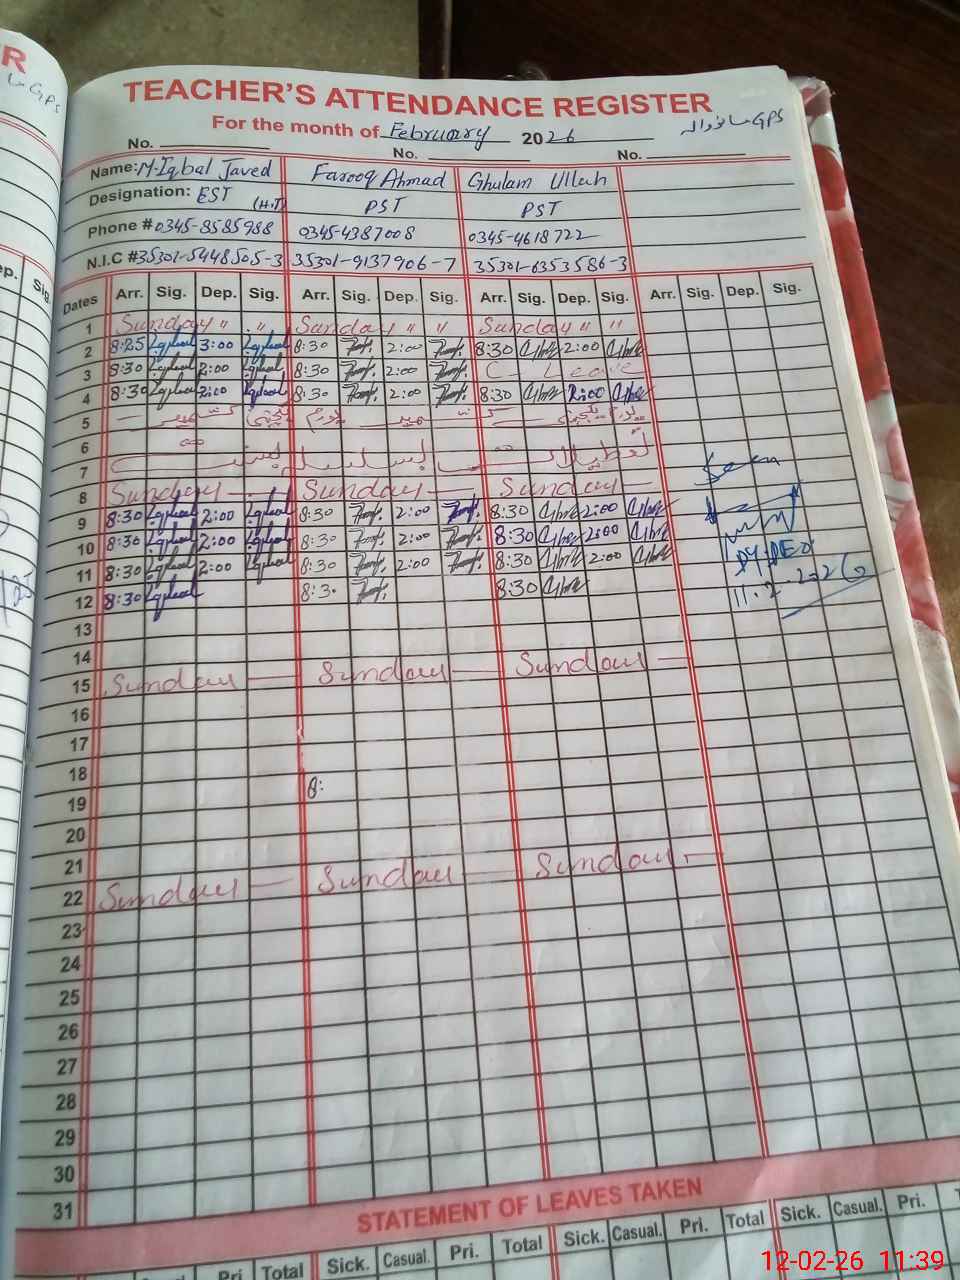 R
GPS
TEACHER'S ATTENDANCE REGISTER
For the month of February 2026
GPS
No. No. No.
Name: M.Iqbal Javed Farooq Ahmad Ghulam Ullah
Designation: EST (H.T) PST PST
Phone # 0345-8585988 0345-4387008 0345-4618722
N.I.C # 35301-5448505-3 35301-9137906-7 35301-6353586-3
ep. Sig.
Dates Arr. Sig. Dep. Sig. Arr. Sig. Dep. Sig. Arr. Sig. Dep. Sig. Arr. Sig. Dep. Sig.
1 Sunday " " Sunday " " Sunday " "
2 8:25 Iqbal 3:00 Iqbal 8:30 2:00 8:30 2:00
3 8:30 Iqbal 2:00 Iqbal 8:30 2:00 C - Leave
4 8:30 Iqbal 2:00 Iqbal 8:30 2:00 8:30 2:00
5 یوم یکجہتی کشمیر یوم یکجہتی کشمیر
6
7 تعطیلات بسلسلہ بسنت
8 Sunday — Sunday — Sunday —
9 8:30 Iqbal 2:00 Iqbal 8:30 2:00 8:30 2:00
10 8:30 Iqbal 2:00 Iqbal 8:30 2:00 8:30 2:00
11 8:30 Iqbal 2:00 Iqbal 8:30 2:00 8:30 2:00
12 8:30 Iqbal 8:30 8:30
Seen
DY.DEO
11.2.2026
13
14
15 Sunday — Sunday — Sunday —
16
17
18
19 8:
20
21
22 Sunday — Sunday — Sunday —
23
24
25
26
27
28
29
30
31
STATEMENT OF LEAVES TAKEN
Pri Total Sick. Casual. Pri. Total Sick. Casual. Pri. Total Sick. Casual. Pri. T
12-02-26 11:39